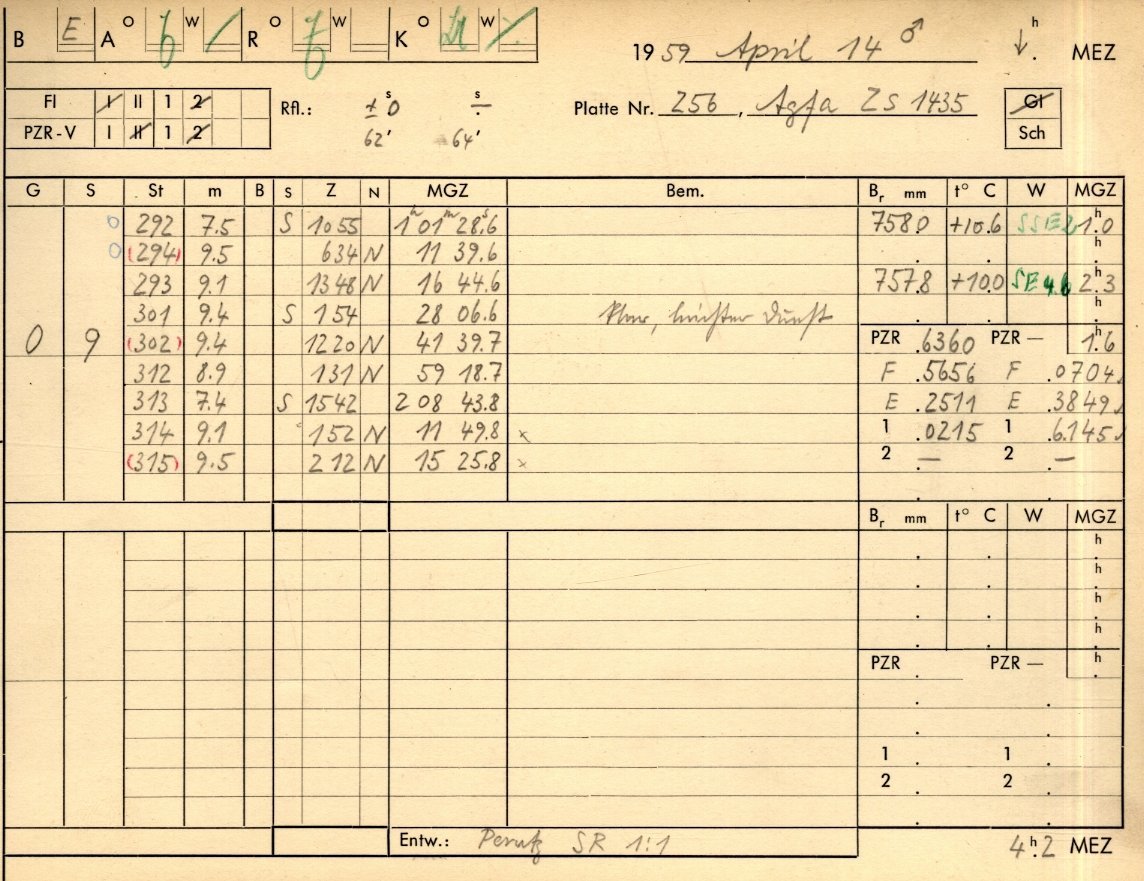 B E A O W R O W K O W
1959 April 14 ♂ h . MEZ
Fl I II 1 2
PZR-V I II 1 2
Rfl.: ± 0 s s
62' 64'
Platte Nr. 256, Agfa ZS 1435
Gl
Sch
G S St m B S Z N MGZ Bem. B_r mm t° C W MGZ
0 292 7.5 S 1055 1h 01m 28.6s 758.0 +10.6 SSE 2 1.h0
0 (294) 9.5 634 N 11 39.6 h
293 9.1 1348 N 16 44.6 757.8 +10.0 SE 4.6 2.h3
301 9.4 S 154 28 06.6 klar, leichter Dunst h
0 9 (302) 9.4 1220 N 41 39.7 PZR .6360 PZR — 1.h6
312 8.9 131 N 59 18.7 F .5656 F .0704
313 7.4 S 1542 2 08 43.8 E .2511 E .3849
314 9.1 152 N 11 49.8 x 1 .0215 1 .6145
(315) 9.5 212 N 15 25.8 x 2 — 2 —
B_r mm t° C W MGZ
h
h
h
h
PZR . PZR — h
1 . 1 .
2 . 2 .
Entw.: Perutz SR 1:1
4.h2 MEZ